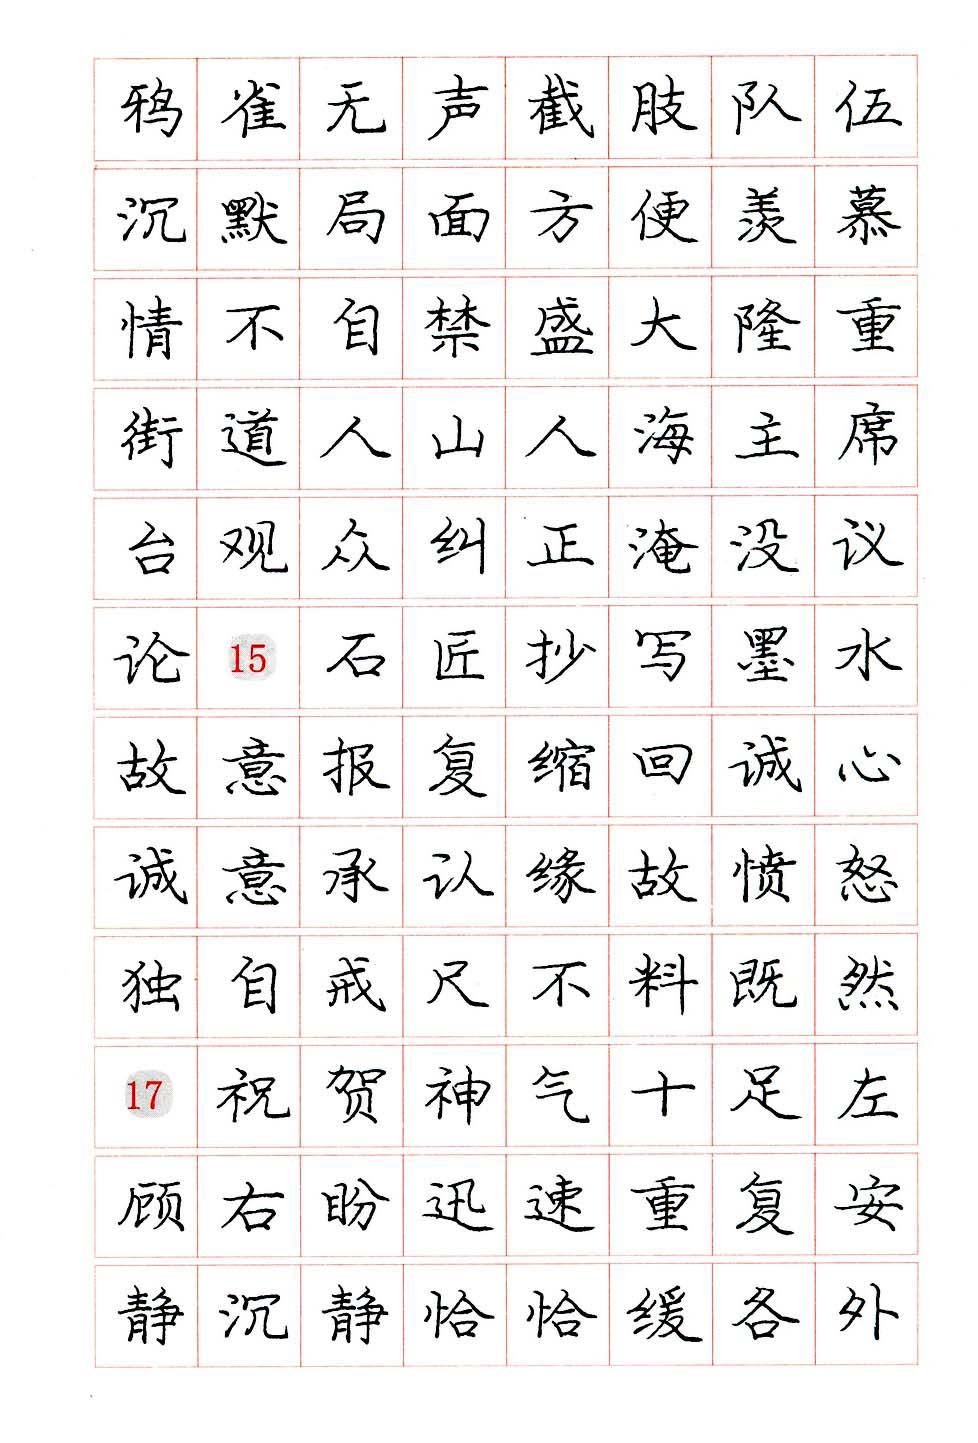 鸦雀无声截肢队伍
沉默局面方便羡慕
情不自禁盛大隆重
街道人山人海主席
台观众纠正淹没议
论15石匠抄写墨水
故意报复缩回诚心
诚意承认缘故愤怒
独自戒尺不料既然
17祝贺神气十足左
顾右盼迅速重复安
静沉静恰恰缓各外